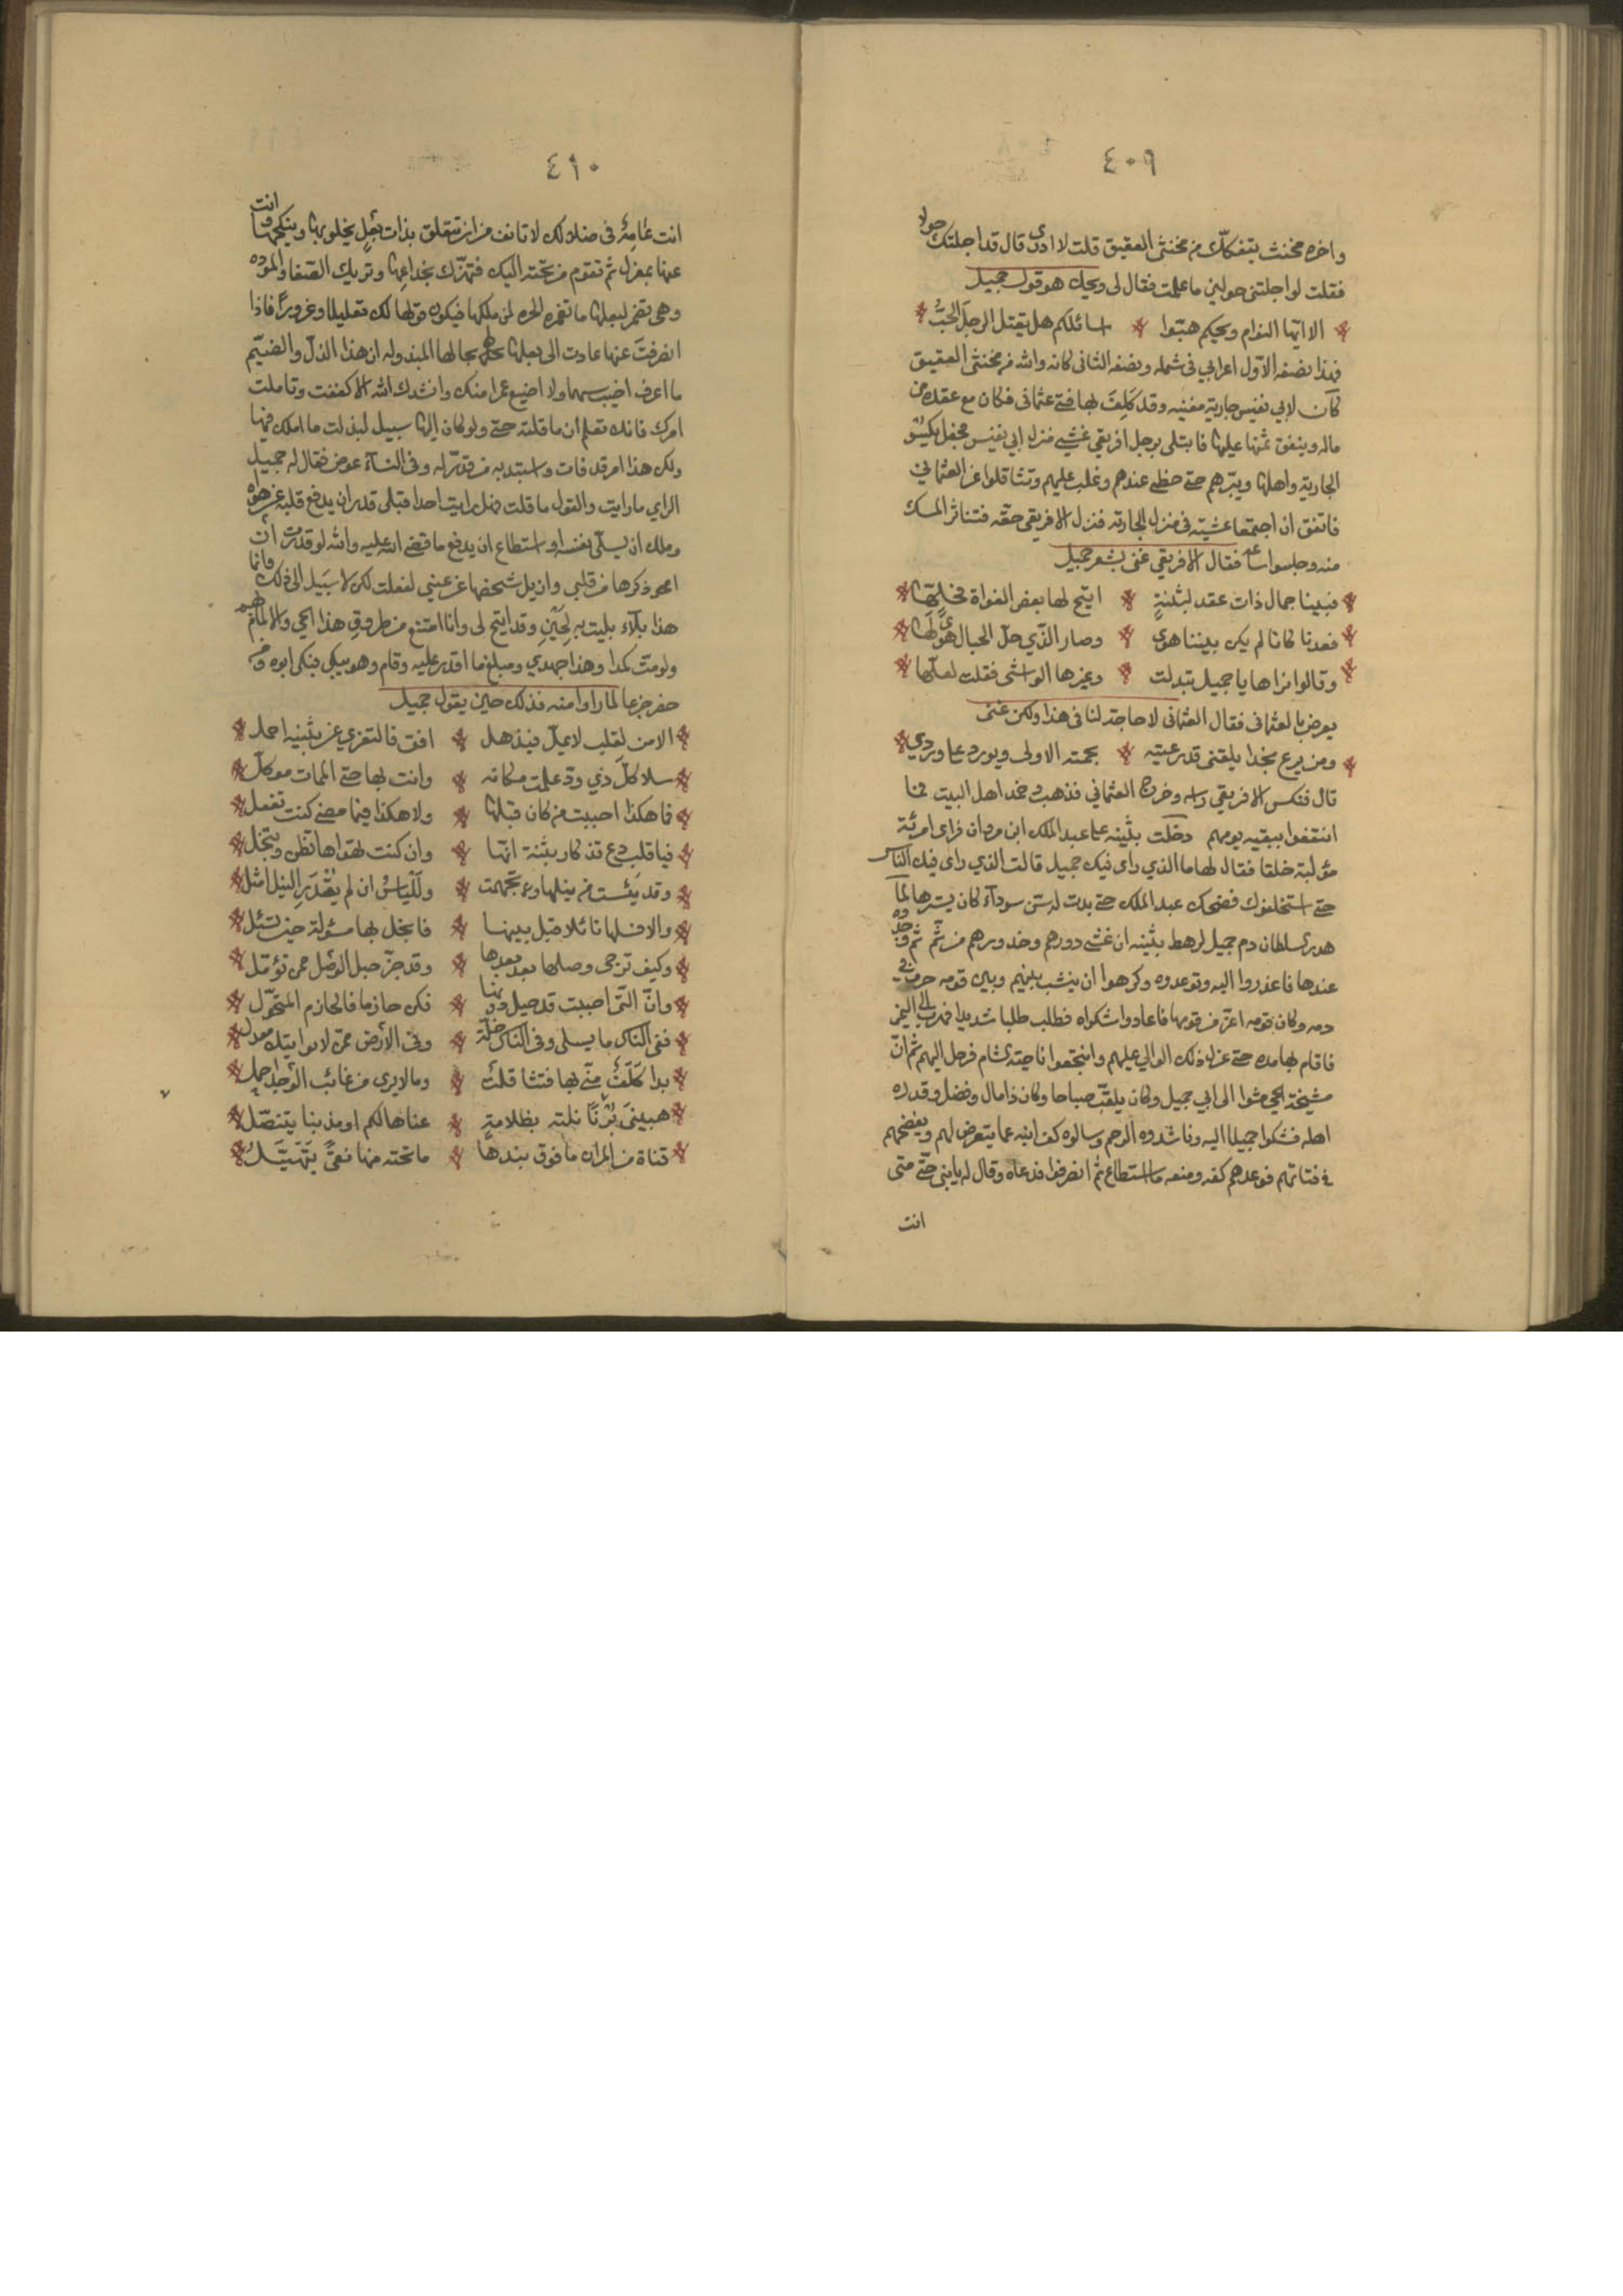 ٤٠٩
واخره مخنث يتفكك من مخنثي العقيق قلت لا ادري قال قد اجلتك حولا
فقلت لو اجلتني حولين ما علمت فقال لي ويحك هو قول جميل
الا ايها النوام ويحكم هبوا اسائلكم هل يقتل الرجل الحبُّ
فهذا نصفه الاول اعرابي في شمله ونصفه الثاني كانه والله من مخنثي العقيق
كان لابي نفيس جارية مغنيه وقد كَلِفَ لها فتى عثماني فكان مع عقده من
ماله وينفق ثمنها عليها فابتلى برجل افريقي غشي منزل ابي نفيس فجعل يكسو
الجارية واهلها ويبرهم حتى حظي عندهم وغلب عليهم وتثاقلوا عن العثماني
فاتفق ان اجتمعا عشية في منزل الجارية فنزل الافريقي حقه فتناثر المسك
منه وجلسوا ساعه فقال الافريقي غنى بشعر جميل
فبينا جمال ذات عقد لبثنةٍ اتيح لها بعض الغواة فحلها
فعدنا كانا لم يكن بيننا هوى وصار الذي حل الحبال هوى لها
وقالوا نراها يا جميل تبدلت وغيرها الواشى فقلت لعلها
يعرض بالعثماني فقال العثماني لا حاجة لنا في هذا ولكن غنى
ومن يرع نجدا يلقنى قد رعيته بجمته الاولى ويورد على وردي
قال فنكس الافريقي راسه وخرج العثماني فذهب وخمد اهل البيت فما
انتفعوا ببقيه يومهم دخلت بثينه على عبد الملك ابن مروان فراى امرئة
مؤلبة خلقا فقال لها ما الذي راى فيك جميل قالت الذي راى فيك الناس
حتى استخلفوك فضحك عبد الملك حتى بدت له سن سوداء كان يسترها لما
هدر السلطان دم جميل لرهط بثينه ان غشي دورهم وحذورهم من ثم ثم وجدوه
عندها فاعذروا اليه وتوعدوه وكرهوا ان ينشب بينهم وبين قومه حرب في
دمه وكان قومه اعز من قومها فاعادوا شكواه فطلب طلبا شديدا فهرب الى اليمن
فاقام بها مده حتى عزل ذلك الوالي عليهم وانتجعوا ناحية الشام فرحل اليهم ثم ان
مشيخة الحي مشوا الى ابي جميل وكان يلقب صباحا وكان ذا مال وفضل وقدره
اهله فشكوا جميلا اليه وناشدوه الرحم وسالوه كف ابنه عما يتعرض لهم ويفضحهم
في فتاتهم فوعدهم كفه ومنعه ما استطاع ثم انصرفوا فدعاه وقال له يا بني حتى متى
انت
٤١٠
انت عامه في ضلالك لا تانف من ان تتعلق بذات بعل يخلو بها وينكحها وانت
عنها بمعزل ثم تقوم من تحته اليك فتغرك بخداعها وتريك الصفا والموده
وهي تضمر لبعلها ما تضمره الحره لمن ملكها فيكون قولها لك تعليلا وغرورا فاذا
انصرفت عنها عادت الى بعلها على حالها المبذوله ان هذا الذل والضيم
ما اعرف اخيب سهما ولا اضيع عمرا منك وانشدك الله الا كففت وتاملت
امرك فانك تعلم ان ما قلته حق ولو كان اليها سبيل لبذلت ما املك فيها
ولكن هذا امر قد فات واستبد به من قدر له وفى النسآء عوض فقال له جميل
الراي ما رايت والقول ما قلت فهل رايت احدا قبلي قدر ان يدفع قلبه عن هواه
وملك ان يسلى نفسه او استطاع ان يدفع ما قضي الله عليه والله لو قدرت ان
امحو ذكرها من قلبي وازيل شخصها عن عيني لفعلت لكن لا سبيل الى ذلك وانما
هذا بلآء بليت به لحين وقد اتيح لى وانا امتنع من طروق هذا الحي والالمام بهم
ولو مت كمدا وهذا جهدي ومبلغ ما اقدر عليه وقام وهو يبكي فبكى ابوه ومن
حضر جزعا لما راوا منه فذلك حين يقول جميل
الا من لقلب لا يمل فيذهل افق فالتعزي عن بثينه اجمل
سلا كل ذي ود علمت مكانه وانت بها حتى الممات موكل
فما هكذا احببت من كان قبلها ولا هكذا فيما مضى كنت تفعل
فيا قلب دع تذكار بثنة انها وان كنت تهواها تظن وتبخل
وقد يئست من نيلها وتجهمت ولَلياسُ ان لم يُقدَرِ النيل امثل
والا فسلها نائلا قبل بينها فابخل بها مسئولة حين تسئل
وكيف ترجى وصلها بعد بعدها وقد جز حبل الوصل ممن تؤمل
وان التى احببت قد حيل دونها فكن حازما فالحازم المتحول
ففى الناس ما يسلى وفى الناس خلة وفى الارض عمن لا يواتيك معدل
بدا كَلَفٌ منّي بها فتثاقلت وما لا يرى من غائب الوجد اجمل
هبينى بُرِّنًا نلته بظلامةٍ عناها لكم او مذنبا يتنصّل
قناة من المران ما فوق بندها ما تحته منها نقىً يَتَهَيَّلُ